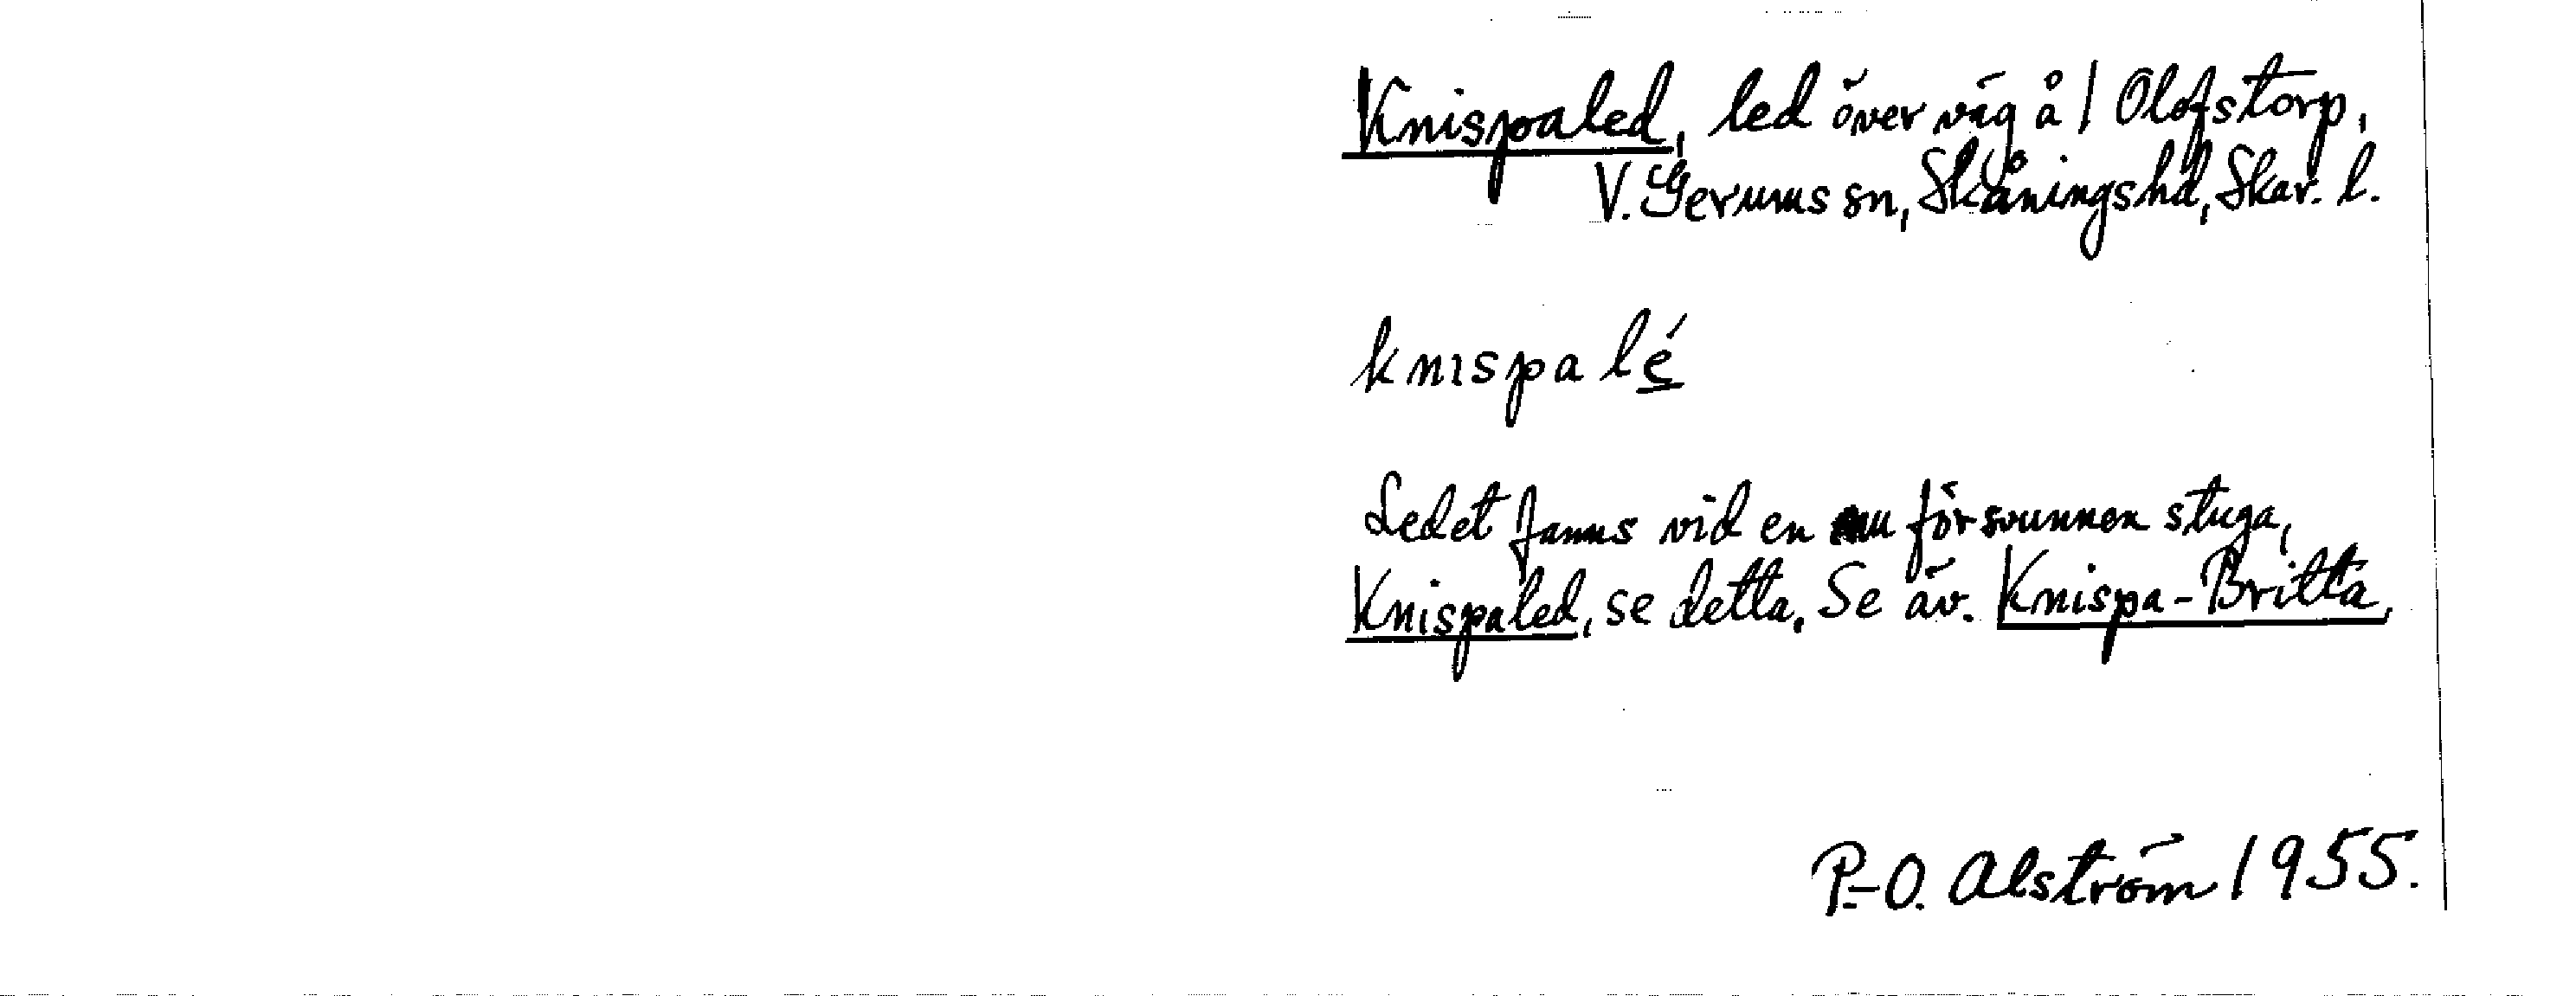 Knispaled, led över väg å 1 Olofstorp,
V. Gerums sn, Skånings hd, Skar. l.
knispalé
Ledet fanns vid en nu försvunnen stuga,
Knispaled, se detta. Se äv. Knispa-Britta,
P.-O. Alström 1955.